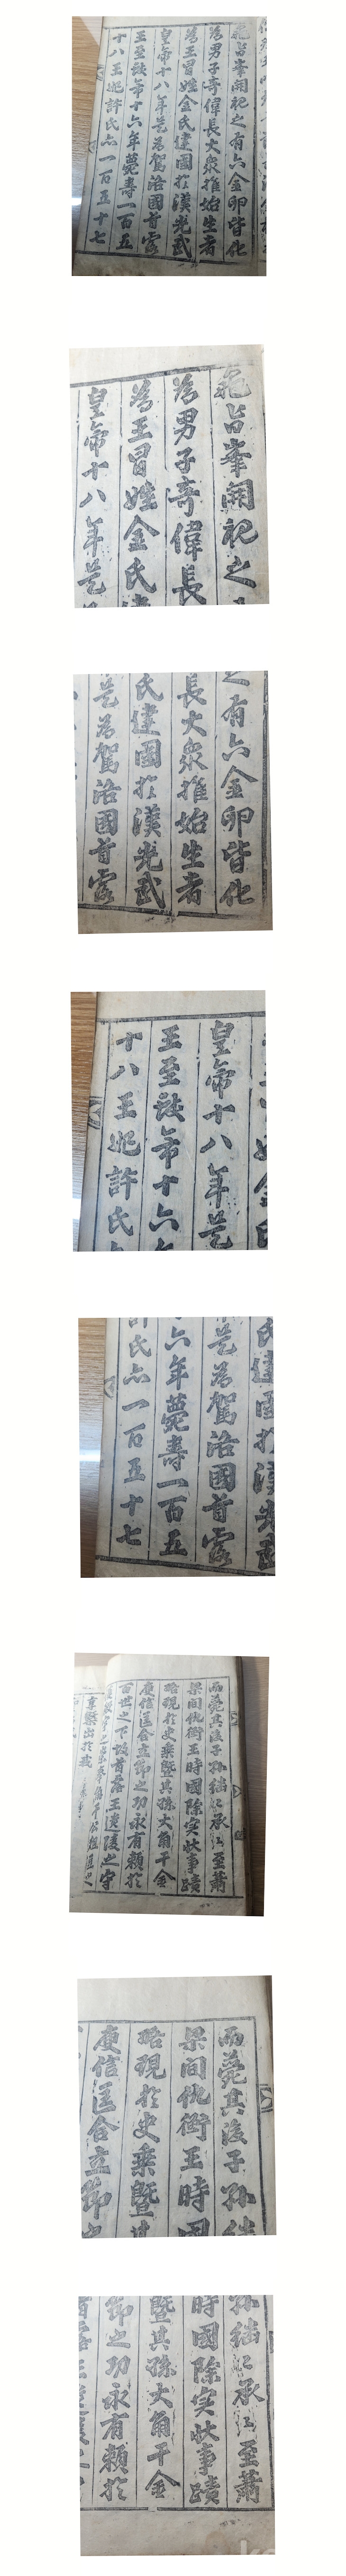 龜旨峯開祀之有六金卵皆化
爲男子奇偉長大衆推始生者
爲王冒姓金氏建國於漢光武
皇帝十八年是爲駕洛國首露
王至献帝十六年薨壽一百五
十八王妃許氏亦一百五十七
龜旨峯開祀之
爲男子奇偉長
爲王冒姓金氏建
皇帝十八年是
之有六金卵皆化
長大衆推始生者
氏建國於漢光武
是爲駕洛國首露
皇帝十八年是
王至献帝十六
十八王妃許氏
氏建國於漢光武
是爲駕洛國首露
六年薨壽一百五
許氏亦一百五十七
而薨其後子孫繼〻承〻至蕭
梁間仇衝王時國除実狀事蹟
現於史乘曁其孫大角干金
庾信匡合立節之功永有賴於
百世之下故首露王遺陵之守
而薨其後子孫繼
梁間仇衝王時國
現於史乘曁其
庾信匡合立節
孫繼〻承〻至蕭
時國除実狀事蹟
曁其孫大角干金
節之功永有賴於